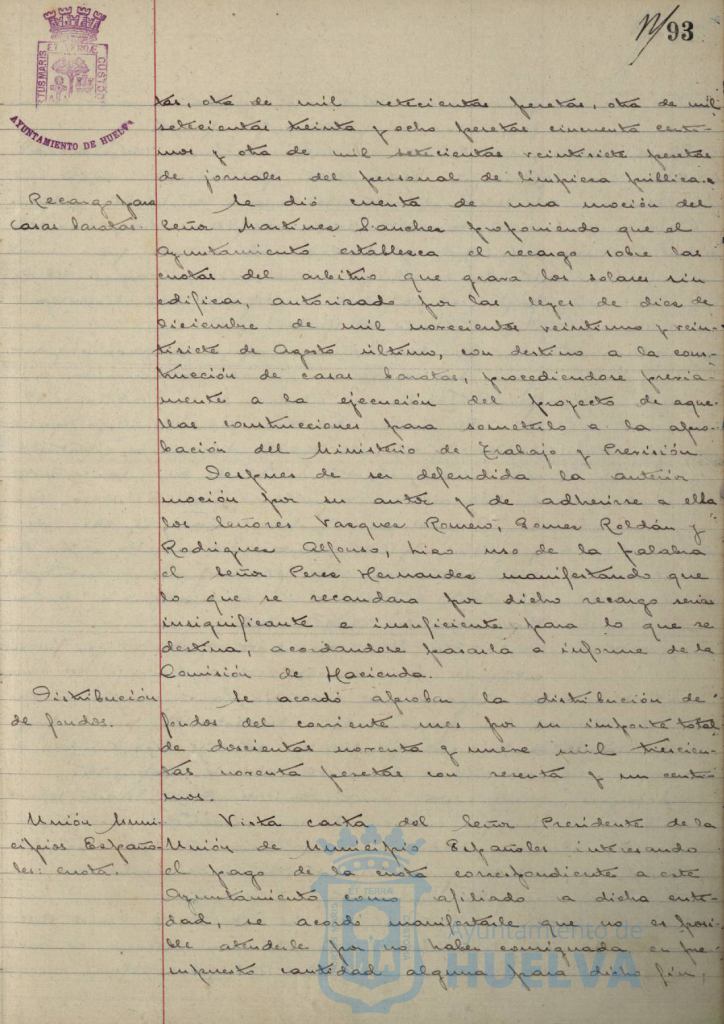 93
PORTUS MARIS ET TERRÆ CUSTODIA
AYUNTAMIENTO DE HUELVA
tas, otra de mil setecientas pesetas, otra de mil
setecientas treinta y ocho pesetas cincuenta centi-
mos y otra de mil setecientas veintisiete pesetas
de jornales del personal de limpieza pública.
Recargo para
casas baratas.
Se dió cuenta de una moción del
Señor Martinez Sanchez proponiendo que el
Ayuntamiento establezca el recargo sobre las
cuotas del arbitrio que grava los solares sin
edificar, autorizado por las leyes de diez de
Diciembre de mil novecientos veintiuno y vein-
tisiete de Agosto último, con destino a la cons-
trucción de casas baratas, procediendose previa-
mente a la ejecución del proyecto de aque-
llas construcciones para someterlo a la apro-
bación del Ministerio de Trabajo y Previsión
Despues de ser defendida la anterior
moción por su autor y de adherirse a ella
los Señores Vazquez Romero, Gomez Roldán y
Rodriguez Alfonso, hizo uso de la palabra
el Señor Perez Hernandez manifestando que
lo que se recaudara por dicho recargo seria
insignificante e insuficiente para lo que se
destina, acordandose pasarla a informe de la
Comisión de Hacienda.
Distribución
de fondos.
Se acordó aprobar la distribución de
fondos del corriente mes por su importe total
de doscientas noventa y nueve mil trescien-
tas noventa pesetas con sesenta y un centi-
mos.
Unión Muni-
cipios Españo-
les: cuota.
Vista carta del Señor Presidente de la
Unión de Municipio Españoles interesando
el pago de la cuota correspondiente a este
Ayuntamiento como afiliado a dicha enti-
dad, se acordó manifestarle que no es posi-
ble atenderle por no haber consignada en pre-
supuesto cantidad alguna para dicho fin,
Ayuntamiento de
HUELVA